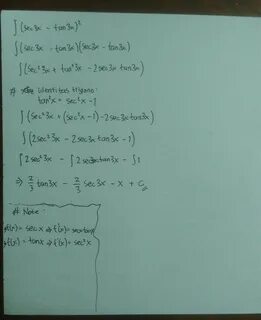 ∫(sec3x - tan3x)²
∫(sec3x - tan3x)(sec3x - tan3x)
∫(sec²3x + tan²3x - 2sec3x tan3x)
# Identitas trigono:
tan²x = sec²x - 1
∫(sec²3x + (sec²3x - 1) - 2sec3x tan3x)
∫(2sec²3x - 2sec3x tan3x - 1)
∫2sec²3x - ∫2sec3x tan3x - ∫1
⇒ 2/3 tan3x - 2/3 sec3x - x + C
# Note:
f(x) = sec x ⇒ f'(x) = secx tanx
f(x) = tanx ⇒ f'(x) = sec²x